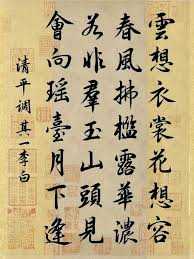 雲想衣裳花想容
春風拂檻露華濃
若非羣玉山頭見
會向瑤臺月下逢
清平調其一李白